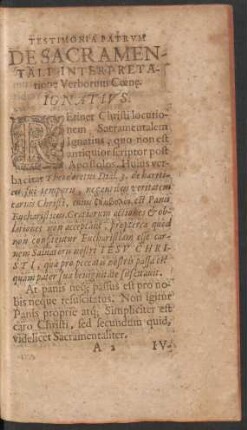 TESTIMONIA PATRVM
DE SACRAMEN-
TALI INTERPRETA-
tione Verborum Cœnę.
IGNATIVS.
REtinet Christi locutio-
nem Sacramentalem
Ignatius, quo non est
antiquior scriptor post
Apostolos. Huius ver-
ba citat Theodoretus Dial. 3. de hæreti-
cis sui temporis, negantibus veritatem
carnis Christi, cuius est Panis
Eucharisticus,
lationes non acceptant, propterea quod
non confitentur Eucharistiam esse car-
nem Saluatoris nostri IESV CHRI-
STI, quæ pro peccatis nostris passa est
quam pater sua benignitate suscitauit.
At panis neq; passus est pro no-
bis neque resuscitatus. Non igitur
Panis proprie atq; Simpliciter est
caro Christi, sed secundum quid,
videlicet Sacramentaliter.
A 2 IV-